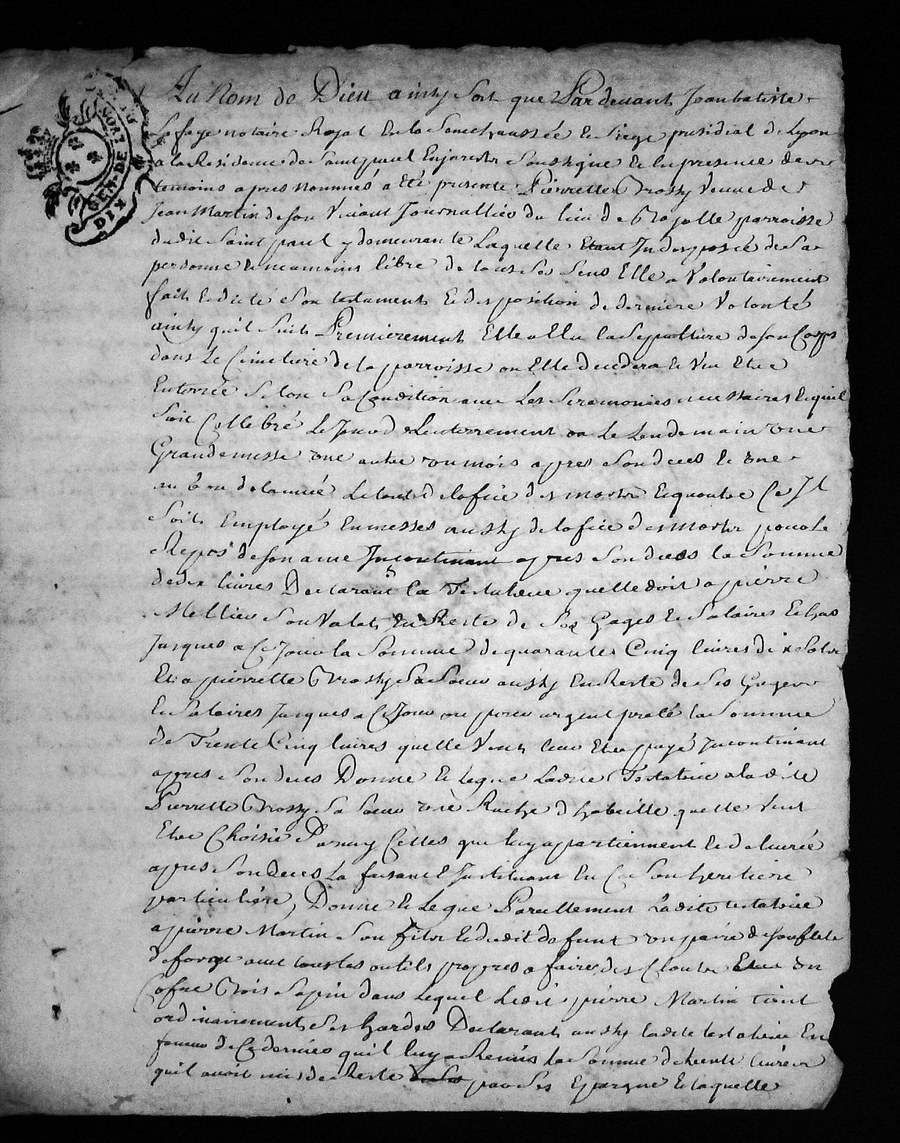 GEN. DE LYON
DIX D
Au Nom de Dieu ainsy soit que Par devant Jean batiste
Lafaye notaire Royal en la Senechaussée et Siege presidial de Lyon
a la Residence de Saint paul En jarest Soussigné et en presence des
temoins apres nommés a eté presente Pierrette Trossy veuve de
Jean Martin de son vivant Journallier du lieu de parroisse
dudit Saint paul y demeurante Laquelle Etant Indisposée de Sa
personne et neamoins libre de tous ses sens Elle a volontairement
fait et dicté son testament et disposition de derniere volonté
ainsy qu'il suit Premierement Elle a Elu la Sepulture de son Corps
dans le Cimetiere de la parroisse ou Elle decedera et veu Etre
Enterrée selon sa Condition avec les Seremonies necessaires et quil
soit Cellebré le Jour de Lenterrement ou le Lendemain une
Grande messe une autre un mois apres son deces et une
au bou de lannée le tout de lofice des morts et quoutre Ce Il
soit Employé En messes aussy de lofice des morts pour le
Repos de son ame Incontinant apres son deces la somme
de dix livres Declarant la Testatrice quelle doit a pierre
Mellier son valet En Reste de ses Gages et Salaires Echus
Jusques a Ce Jour la Somme de quarante Cinq livres dix sols
Et a pierrette Trossy Sa Soeur aussy En Reste de ses Gages
et Salaires Jusques a Ce Jour ou pour argent preté la Somme
de Trente Cinq livres quelle veut leur Etre payé Incontinant
apres son deces Donne et legue Ladite Testatrice a la dite
Pierrette Trossy sa soeur une Ruche d habeille quelle veut
Etre Choisie Parmy Celles que luy apartiennent et delivrée
apres son deces La faisant et Instituant En Ce Son heritiere
particuliere, Donne et legue Pareillement Ladite testatrice
a pierre Martin son fils et dudit defunt un paire de souflets
de forge avec tous les outils propres a faire des Cloux Et un
Cofre Bois sapin dans lequel ledit pierre Martin tient
ordinairement ses hardes Declarant aussy ladite testatrice En
faveur de Ce dernier quil luy a Remis la Somme de trente livres
quil avoit mis de Reste par ses Epargne Et laquelle